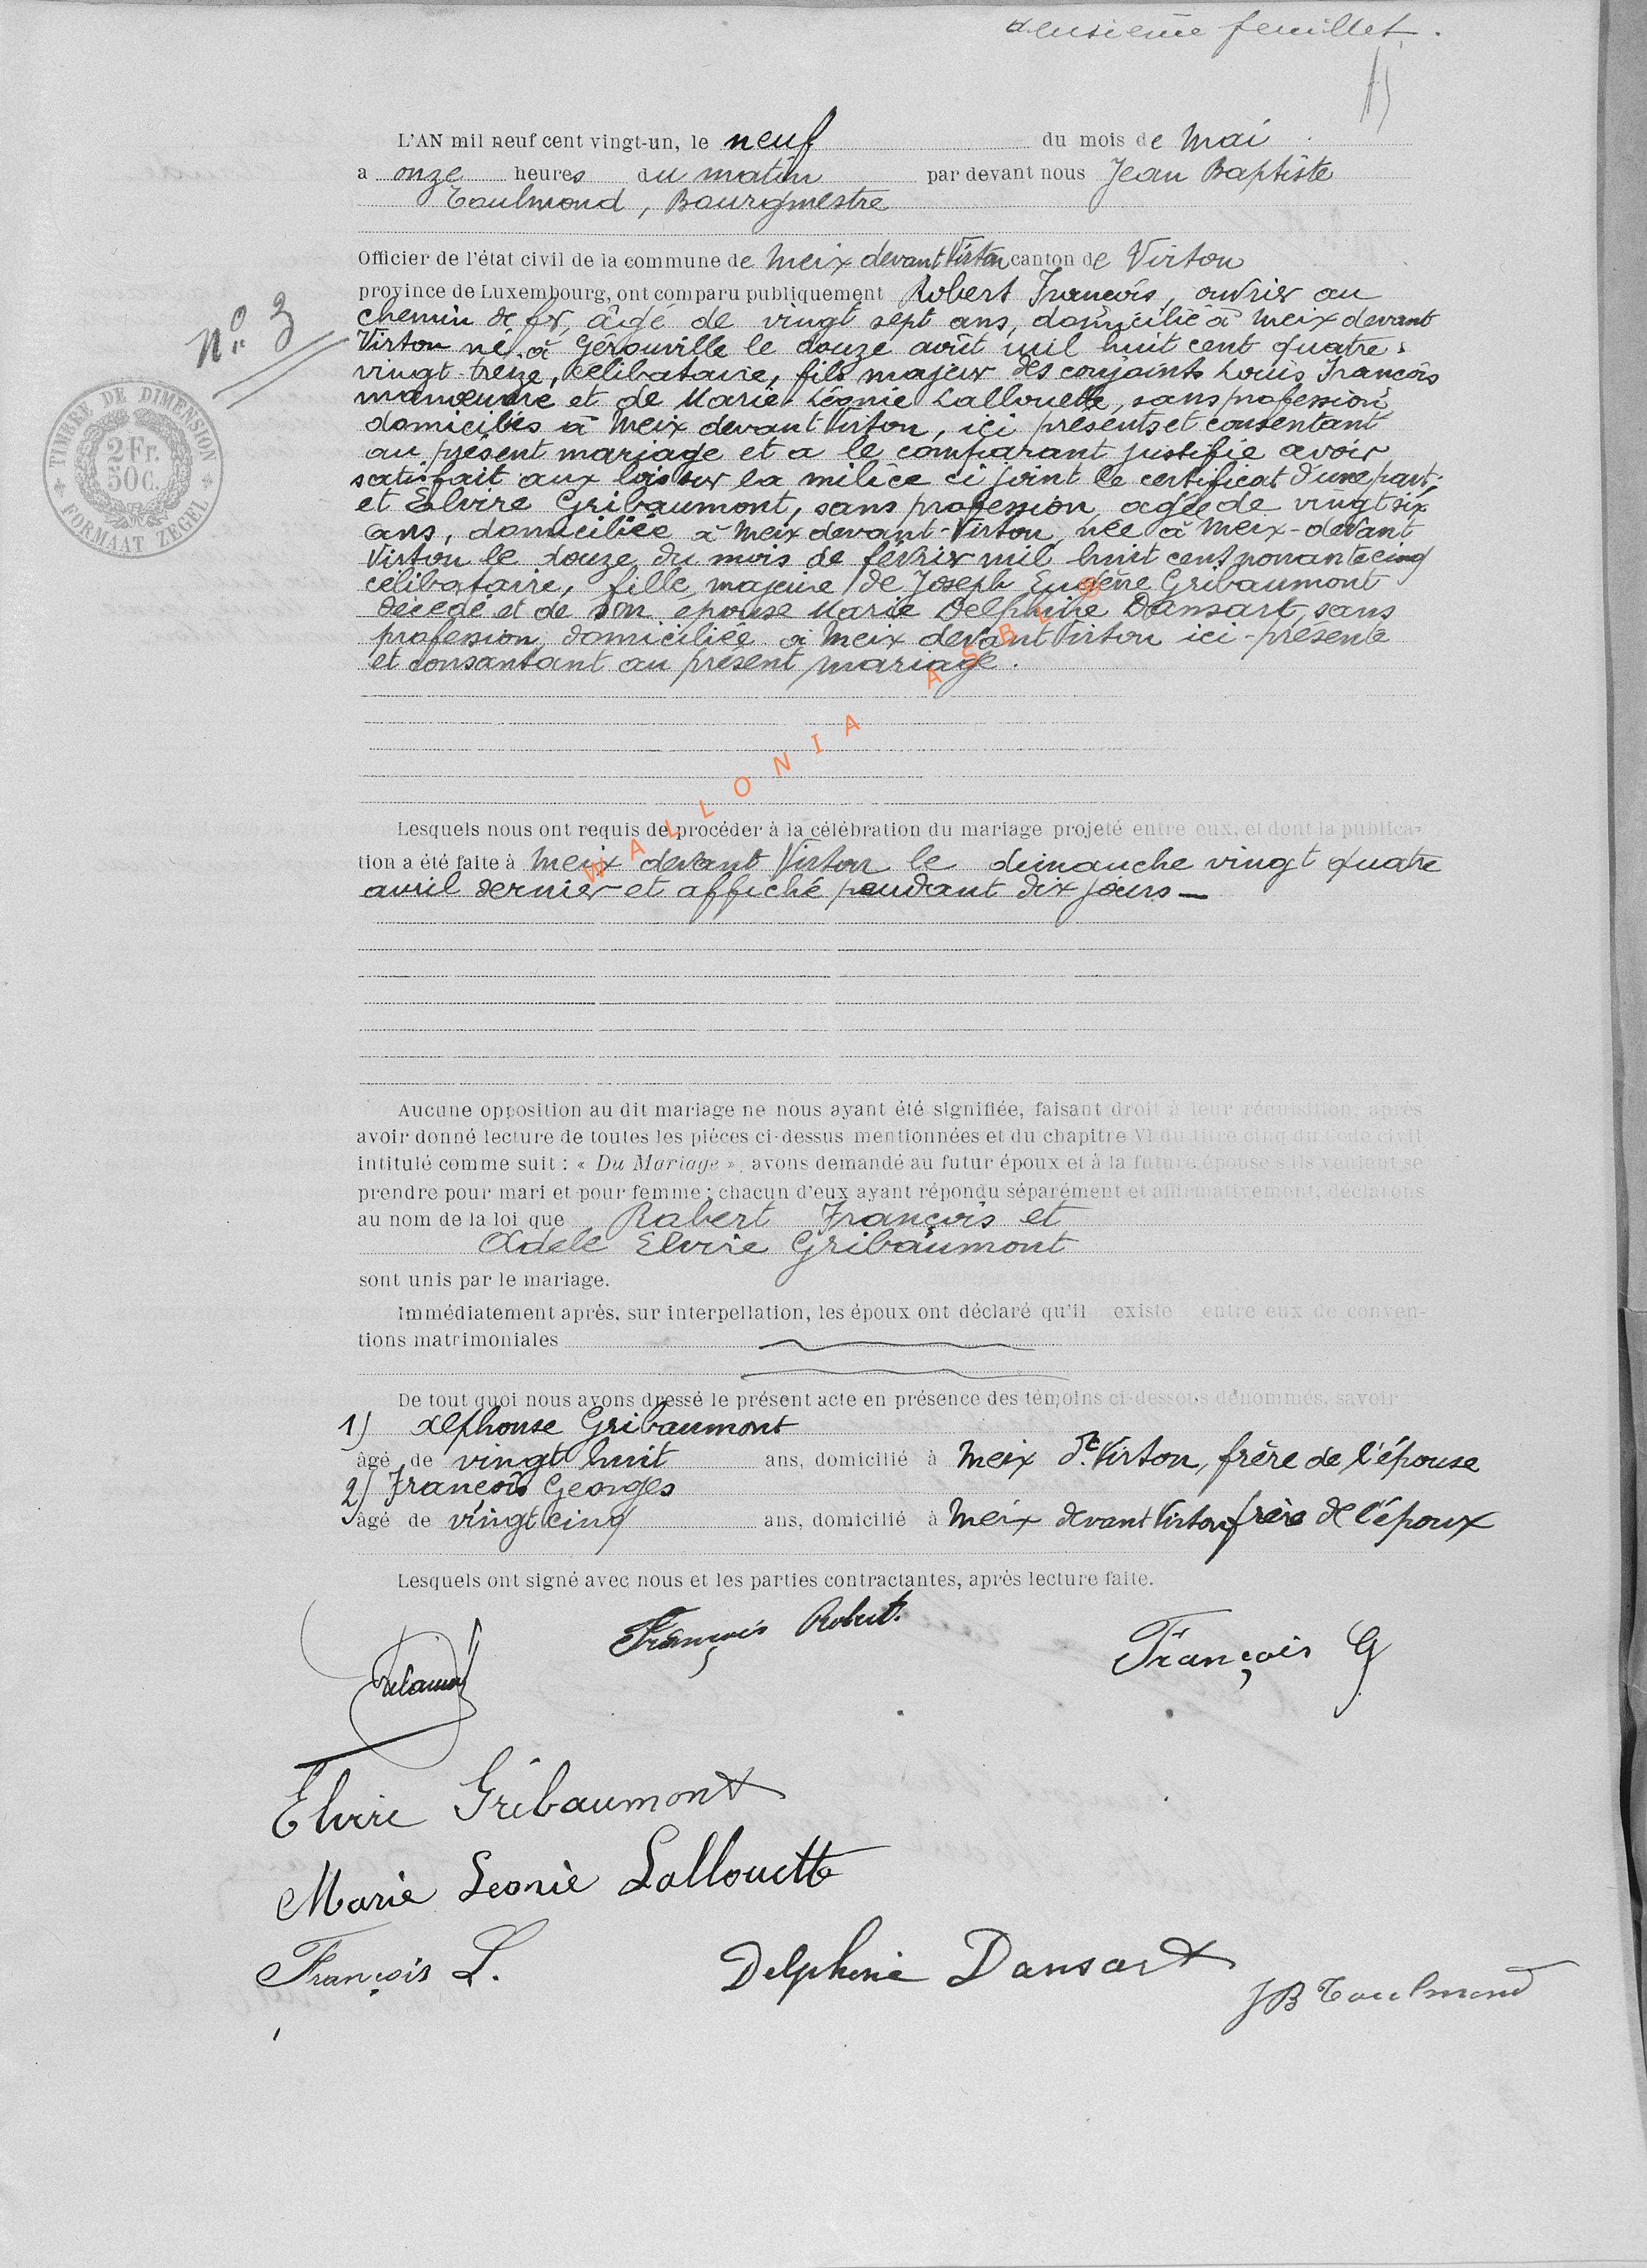 deusième feuillet.
L'AN mil neuf cent vingt-un, le neuf du mois de Mai
a onze heures du matin par devant nous Jean Baptiste
Toulmond, Bourgmestre
Officier de l'état civil de la commune de Meix devant Virton canton de Virton
province de Luxembourg, ont comparu publiquement Robert François, ouvrier au
chemin de fer, âgé de vingt sept ans, domicilié à Meix devant
Virton né à Gérouville le douze août mil huit cent quatre
vingt-treize, célibataire, fils majeur des conjoints Louis François
manœuvre et de Marie Léonie Lallouette, sans profession,
domiciliés à Meix devant Virton, ici présents et consentant
au présent mariage et a le comparant justifié avoir
satisfait aux lois sur la milice ci joint le certificat d'une part;
et Elvire Gribaumont, sans profession, agée de vingt six
ans, domiciliée à Meix devant-Virton, née à Meix-devant
Virton le douze du mois de février mil huit cent nonante cinq
célibataire, fille majeure de Joseph Eugène Gribaumont
décédé et de son épouse Marie Delphine Dansart, sans
profession, domiciliée à Meix devant Virton ici-présente
et consantant au présent mariage.
WALLONIA ASBL ©
Lesquels nous ont requis de procéder à la célébration du mariage projeté entre eux, et dont la publica-
tion a été faite à Meix devant Virton le dimanche vingt quatre
avril dernier et affiché pendant dix jours —
Aucune opposition au dit mariage ne nous ayant été signifiée, faisant droit à leur réquisition, après
avoir donné lecture de toutes les pièces ci-dessus mentionnées et du chapitre VI du titre cinq du Code civil
intitulé comme suit : « Du Mariage », avons demandé au futur époux et à la future épouse s'ils veulent se
prendre pour mari et pour femme ; chacun d'eux ayant répondu séparément et affirmativement, déclarons
au nom de la loi que Robert François et
Adèle Elvire Gribaumont
sont unis par le mariage.
Immédiatement après, sur interpellation, les époux ont déclaré qu'il existe entre eux de conven-
tions matrimoniales
De tout quoi nous avons dressé le présent acte en présence des témoins ci-dessous dénommés, savoir
1) Alphonse Gribaumont
âgé de vingt huit ans, domicilié à Meix dt Virton, frère de l'épouse
2) François Georges
âgé de vingt cinq ans, domicilié à Meix devant Virton frère de l'époux
Lesquels ont signé avec nous et les parties contractantes, après lecture faite.
François Robert.
François G
Elvire Gribaumont
Marie Leonie Lallouette
François L.
Delphine Dansart
JB Toulmond
No 3
TIMBRE DE DIMENSION
2 Fr.
50 C.
FORMAAT ZEGEL